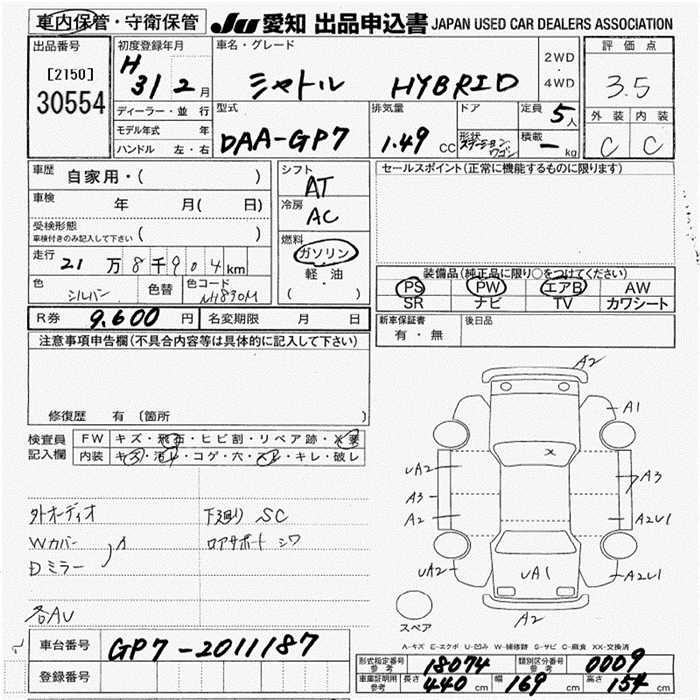 車内保管・守衛保管 JU 愛知 出品申込書 JAPAN USED CAR DEALERS ASSOCIATION
出品番号 [2150] 30554
初度登録年月 H 31 2 月
車名・グレード シャトル HYBRID 2WD ・ 4WD
評価点 3.5
外装 内装 C C
ディーラー・並行
モデル年式 年
ハンドル 左・右
型式 DAA-GP7
排気量 1.49 CC
ドア 形状 ステーションワゴン
定員 5人
積載 - kg
車歴 自家用・( )
車検 年 月( 日)
受検形態 車検付きのみ記入して下さい ( )
走行 21万8千904km
色 シルバー 色替 色コード NH830M
シフト AT
冷房 AC
燃料 ガソリン
軽・油
( ・ )
セールスポイント(正常に機能するものに限ります)
装備品(純正品に限り○をつけてください)
PS PW エアB AW
SR ナビ TV カワシート
R券 9.600 円 名変期限 月 日
新車保証書 有・無 後日品
注意事項申告欄(不具合内容等は具体的に記入して下さい)
修復歴 有 〔箇所
検査員記入欄 FW キズ・飛石・ヒビ割・リペア跡・X要
内装 キズ・汚れ・コゲ・穴・スレ・キレ・破レ
外オーディオ 下廻り SC
Wカバー ロアサポート シワ
Dミラー
各AU
A2
A1
UA2 A3
A3
A2 A2U1
UA2 UA1 A2U1
A2
スペア
A-キズ E-エクボ U-凹み W-補修跡 S-サビ C-腐食 XX-交換済
車台番号 GP7-2011187
登録番号
形式指定番号 参考 18074 類別区分番号 参考 0009
車庫証明用 参考 長さ 440 cm 幅 169 cm 高さ 154 cm